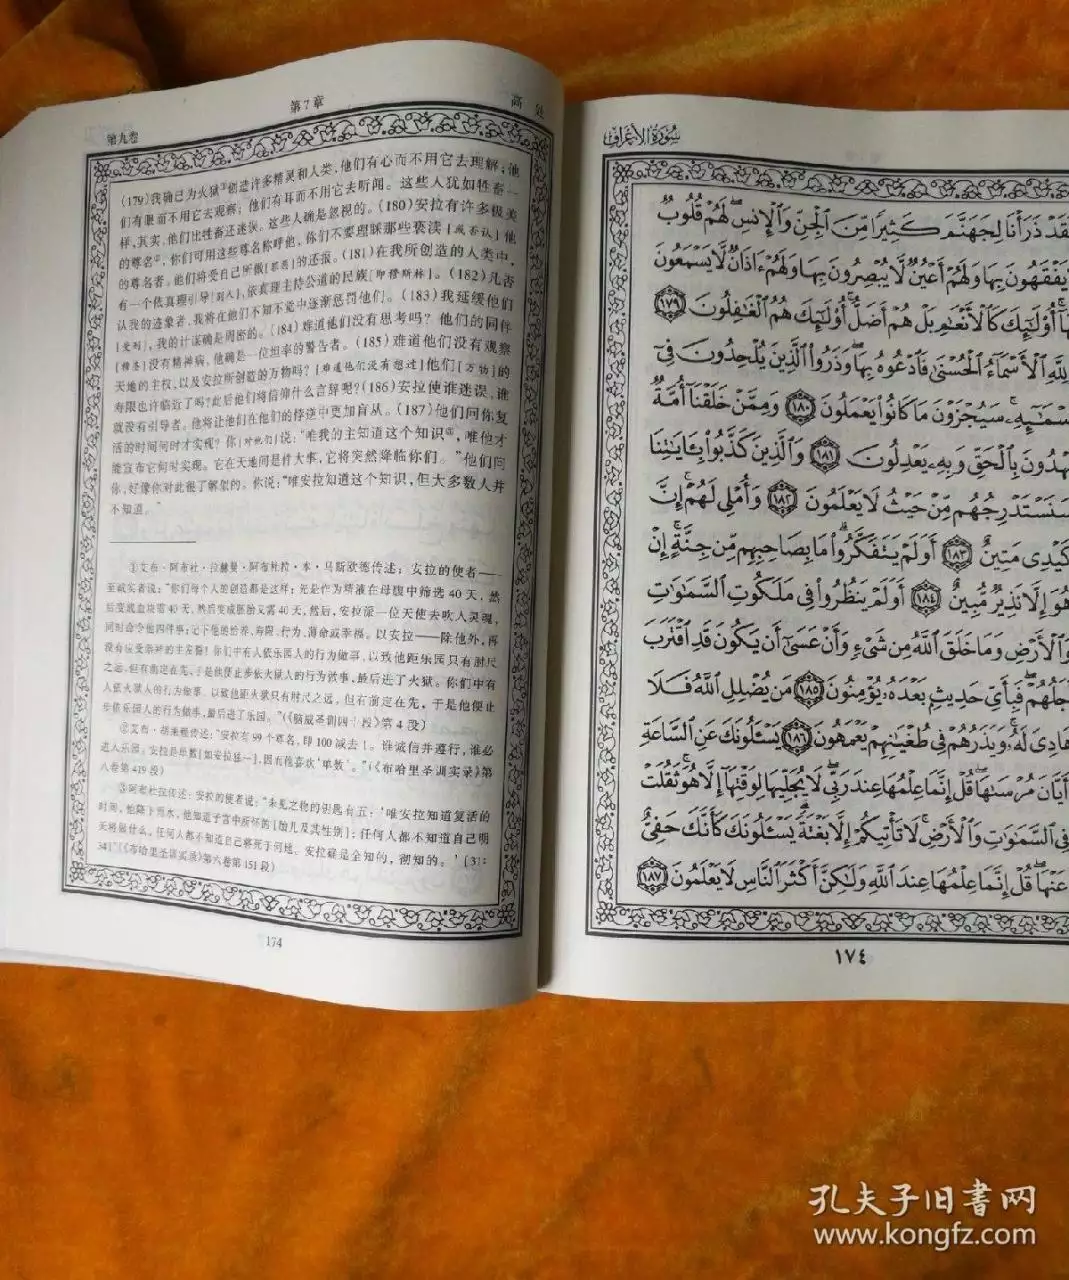 第九卷
第7章
高 处
(179)我确已为火狱①创造许多精灵和人类,他们有心而不用它去理解;他
们有眼而不用它去观察;他们有耳而不用它去听闻。这些人犹如牲畜一
样,其实,他们比牲畜还迷误。这些人确是忽视的。(180)安拉有许多极美
的尊名②,你们可用这些尊名称呼他,你们不要理睬那些亵渎[或否认]他
的尊名者,他们将受自己所做[罪恶]的还报。(181)在我所创造的人类中,
有一个依真理引导[别人],依真理主持公道的民族[即穆斯林]。(182)凡否
认我的迹象者,我将在他们不知不觉中逐渐惩罚他们。(183)我延缓他们
[受刑],我的计谋确是周密的。(184)难道他们没有思考吗?他们的同伴
[穆圣]没有精神病,他确是一位坦率的警告者。(185)难道他们没有观察
天地的主权,以及安拉所创造的万物吗?[难道他们没有想过]他们[万物]的
寿限也许临近了吗?此后他们将信仰什么言辞呢?(186)安拉使谁迷误,谁
就没有引导者。他将让他们在他们的悖逆中更加盲从。(187)他们问你复
活的时间何时才实现?你[对他们]说:“唯我的主知道这个知识③,唯他才
能宣布它何时实现。它在天地间是件大事,它将突然降临你们。”他们问
你,好像你对此很了解似的。你说:“唯安拉知道这个知识,但大多数人并
不知道。”
①艾布·阿布杜·拉赫曼·阿布杜拉·本·马斯欧德传述:安拉的使者——
至诚实者说:“你们每个人的创造都是这样:先是作为精液在母腹中筛选40天,然
后变成血块需40天,然后变成胚胎又需40天,然后,安拉派一位天使去吹入灵魂,
同时命令他四件事:记下他的给养、寿限、行为、薄命或幸福。以安拉——除他外,再
没有应受崇拜的主发誓!你们中有人依乐园人的行为做事,以致他距乐园只有肘尺
之远,但有前定在先,于是他便止步依火狱人的行为做事,最后进了火狱。你们中有
人依火狱人的行为做事,以致他距火狱只有肘尺之远,但有前定在先,于是他便止
步依乐园人的行为做事,最后进了乐园。”(《脑威圣训四十段》第4段)
②艾布·胡莱赖传述:“安拉有99个尊名,即100减去1。谁诚信并遵行,谁必
进入乐园。安拉是单数[如安拉独一],因而他喜欢‘单数’。”(《布哈里圣训实录》第
八卷第419段)
③阿布杜拉传述:安拉的使者说:“未见之物的钥匙有五:‘唯安拉知道复活的
时间,他降下雨水,他知道子宫中所怀的[胎儿及其性别];任何人都不知道自己明
天将做什么,任何人都不知道自己将死于何地。安拉确是全知的,彻知的。’[31:
34]”(《布哈里圣训实录》第六卷第151段)
174
سُورَةُ الأَعْرَافِ
لَقَدْ ذَرَأْنَا لِجَهَنَّمَ كَثِيرًا مِّنَ الْجِنِّ وَالْإِنسِ لَهُمْ قُلُوبٌ
يَفْقَهُونَ بِهَا وَلَهُمْ أَعْيُنٌ لَّا يُبْصِرُونَ بِهَا وَلَهُمْ ءَاذَانٌ لَّا يَسْمَعُونَ
بِهَا أُوْلَٰٓئِكَ كَالْأَنْعَامِ بَلْ هُمْ أَضَلُّ أُوْلَٰٓئِكَ هُمُ الْغَافِلُونَ ١٧٩
لِلَّهِ الْأَسْمَاءُ الْحُسْنَىٰ فَادْعُوهُ بِهَا وَذَرُوا الَّذِينَ يُلْحِدُونَ فِي
أَسْمَائِهِ سَيُجْزَوْنَ مَا كَانُوا يَعْمَلُونَ ١٨٠ وَمِمَّنْ خَلَقْنَا أُمَّةٌ
يَهْدُونَ بِالْحَقِّ وَبِهِ يَعْدِلُونَ ١٨١ وَالَّذِينَ كَذَّبُوا بِآيَاتِنَا
سَنَسْتَدْرِجُهُم مِّنْ حَيْثُ لَا يَعْلَمُونَ ١٨٢ وَأُمْلِي لَهُمْ إِنَّ
كَيْدِي مَتِينٌ ١٨٣ أَوَلَمْ يَتَفَكَّرُوا مَا بِصَاحِبِهِم مِّن جِنَّةٍ إِنْ
هُوَ إِلَّا نَذِيرٌ مُّبِينٌ ١٨٤ أَوَلَمْ يَنظُرُوا فِي مَلَكُوتِ السَّمَاوَاتِ
وَالْأَرْضِ وَمَا خَلَقَ اللَّهُ مِن شَيْءٍ وَأَنْ عَسَىٰ أَن يَكُونَ قَدِ اقْتَرَبَ
أَجَلُهُمْ فَبِأَيِّ حَدِيثٍ بَعْدَهُ يُؤْمِنُونَ ١٨٥ مَن يُضْلِلِ اللَّهُ فَلَا
هَادِيَ لَهُ وَيَذَرُهُمْ فِي طُغْيَانِهِمْ يَعْمَهُونَ ١٨٦ يَسْأَلُونَكَ عَنِ السَّاعَةِ
أَيَّانَ مُرْسَاهَا قُلْ إِنَّمَا عِلْمُهَا عِندَ رَبِّي لَا يُجَلِّيهَا لِوَقْتِهَا إِلَّا هُوَ ثَقُلَتْ
فِي السَّمَاوَاتِ وَالْأَرْضِ لَا تَأْتِيكُمْ إِلَّا بَغْتَةً يَسْأَلُونَكَ كَأَنَّكَ حَفِيٌّ
عَنْهَا قُلْ إِنَّمَا عِلْمُهَا عِندَ اللَّهِ وَلَٰكِنَّ أَكْثَرَ النَّاسِ لَا يَعْلَمُونَ ١٨٧
١٧٤
孔夫子旧书网
www.kongfz.com